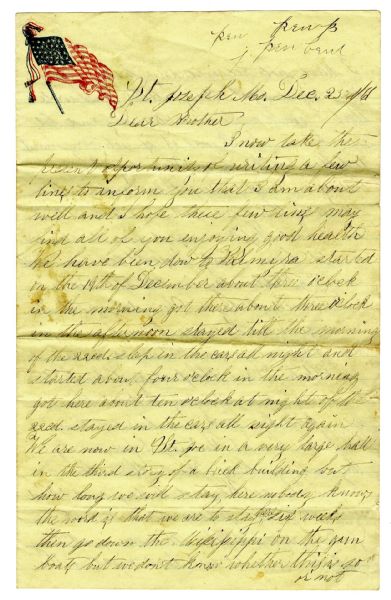 pen pens
pen bend
St. Joseph Mo. Dec. 25th /61
Dear Brother
I now take the
present oportunity of writing a few
lines to inform you that I am about
well and I hope these few lines may
find all of you enjoying good health
We have been down to Palmira started
on the 19th of December about three oclock
in the morning got there about three oclock
in the afternoon stayed till the morning
of the 22ed. slep in the cars all night and
started about four oclock in the morning
got here about ten oclock at night of the
22ed. stayed in the cars all night again
We are now in St. Joe in a very large hall
in the third story of a brick building but
how long we will stay here nobody knows
the word is that we are to stay here six weeks
then go down the Missippi on the gun
boats but we dont know whether this is so
or not